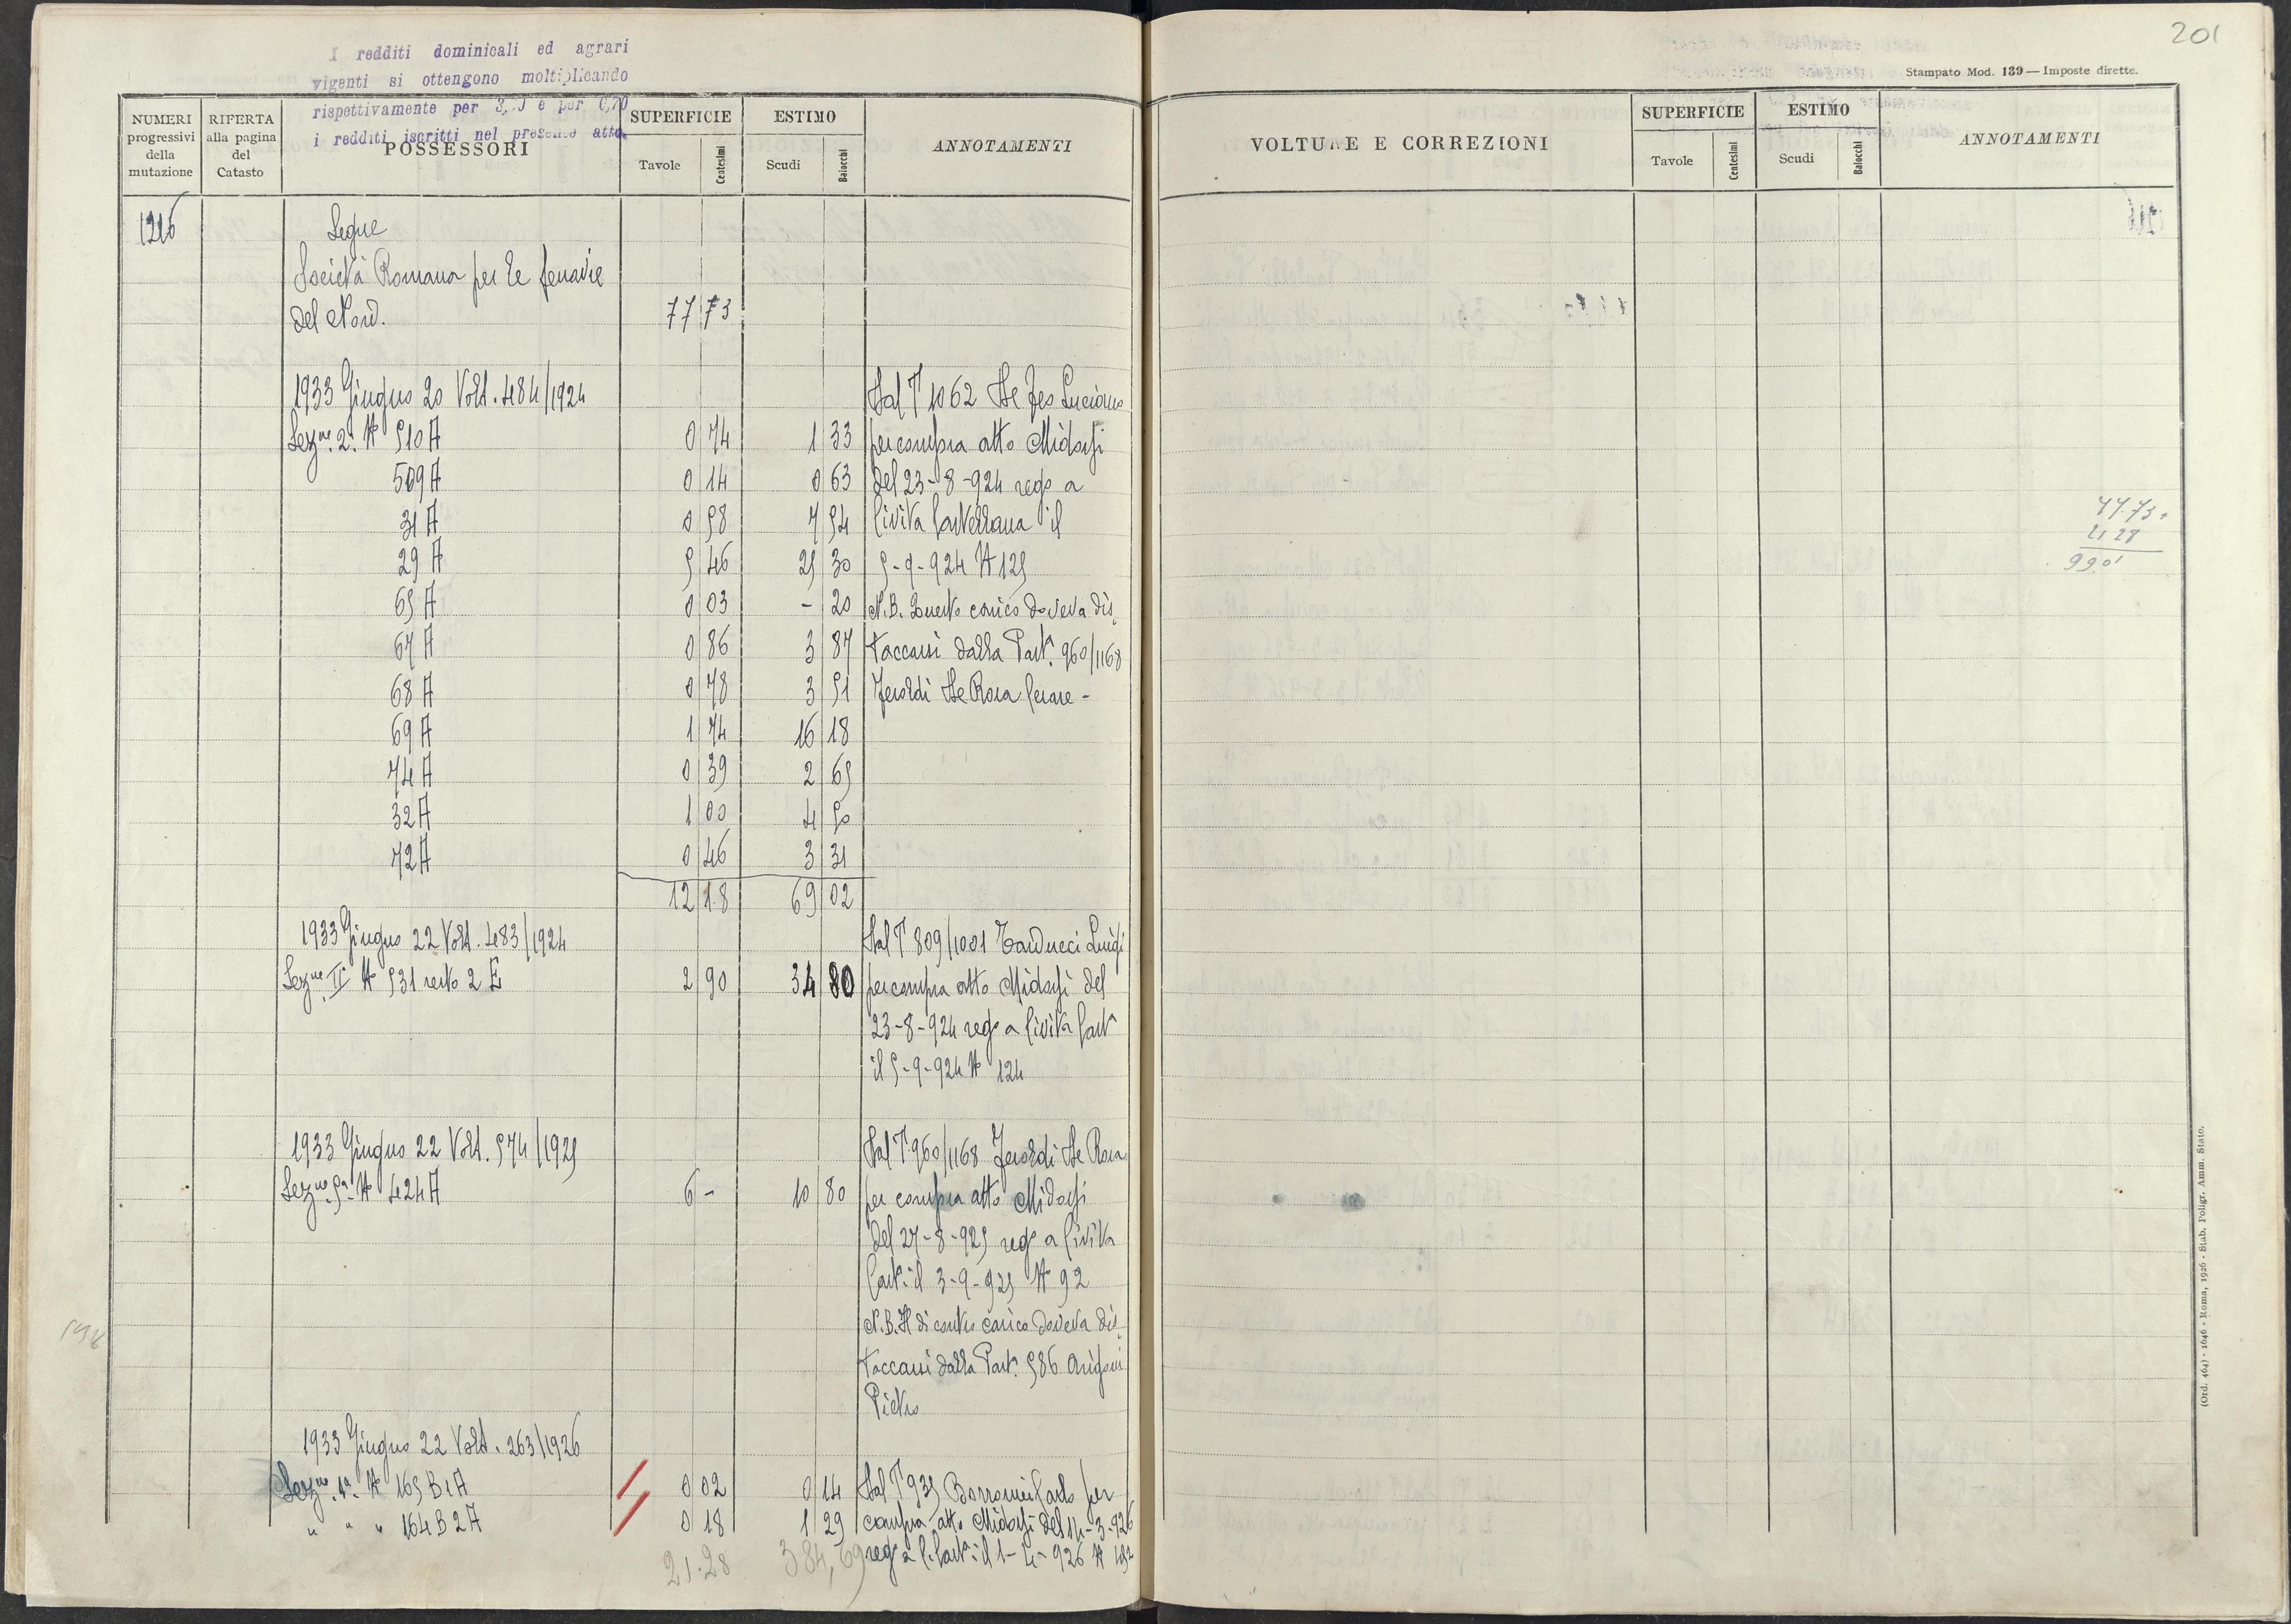 201
I redditi dominicali ed agrari
vigenti si ottengono moltiplicando
rispettivamente per e per 0,70
i redditi iscritti nel presente atto
Stampato Mod. 139 — Imposte dirette.
NUMERI progressivi della mutazione
RIFERTA alla pagina del Catasto
POSSESSORI
SUPERFICIE Tavole Centesimi
ESTIMO Scudi Baiocchi
ANNOTAMENTI
VOLTURE E CORREZIONI
SUPERFICIE Tavole Centesimi
ESTIMO Scudi Baiocchi
ANNOTAMENTI
1216 Segue
Società Romana per le ferrovie
del Nord. 77 73
1933 Giugno 20 Volt. 484/1924 Dal P 1062 De Luciano
Sezne. 2a. No 510 A 0 74 1 33 per compra atto Midossi
509 A 0 14 0 63 del 23-8-924 rego a
31 A 0 98 7 54 Civita Castellana il
29 A 5 46 25 30 5-9-924 No 125
65 A 0 03 - 20 N.B. Questo carico doveva dis
67 A 0 86 3 87 taccarsi dalla Part. 960/1168
68 A 0 78 3 51 De Rosa Cesare -
69 A 1 74 16 18
74 A 0 39 2 65
32 A 1 00 4 50
72 A 0 46 3 31
12 18 69 02
77.73
21 28
99 01
1933 Giugno 22 Volt. 483/1924 Dal P 809/1001 Tarducci Luigi
Sezne II No 531 resto 2 E 2 90 34 80 per compra atto Midossi del
23-8-924 rego a Civita Cast
il 5-9-924 No 124
1933 Giugno 22 Volt. 574/1925 Dal P. 960/1168 De Rosa
Sezne. 5a. No 424 A 6 - 10 80 per compra atto Midossi
del 27-8-925 rego a Civita
Cast. il 3-9-925 No 92
N.B. Il di contro carico doveva dis
taccarsi dalla Part. 586 Arigoni
Pietro
1933 Giugno 22 Volt. 263/1926
Sezne. 1a. No 165 B 1 A 0 02 0 14 Dal P 935 Borromei Carlo per
" " " 164 B 2 A 0 18 1 29 compra atto Midossi del 14-3-926
21.28 384,69 rego a C. Cast. il 1-4-926 No
(Ord. 464) - 1646 - Roma, 1926 - Stab. Poligr. Amm. Stato.